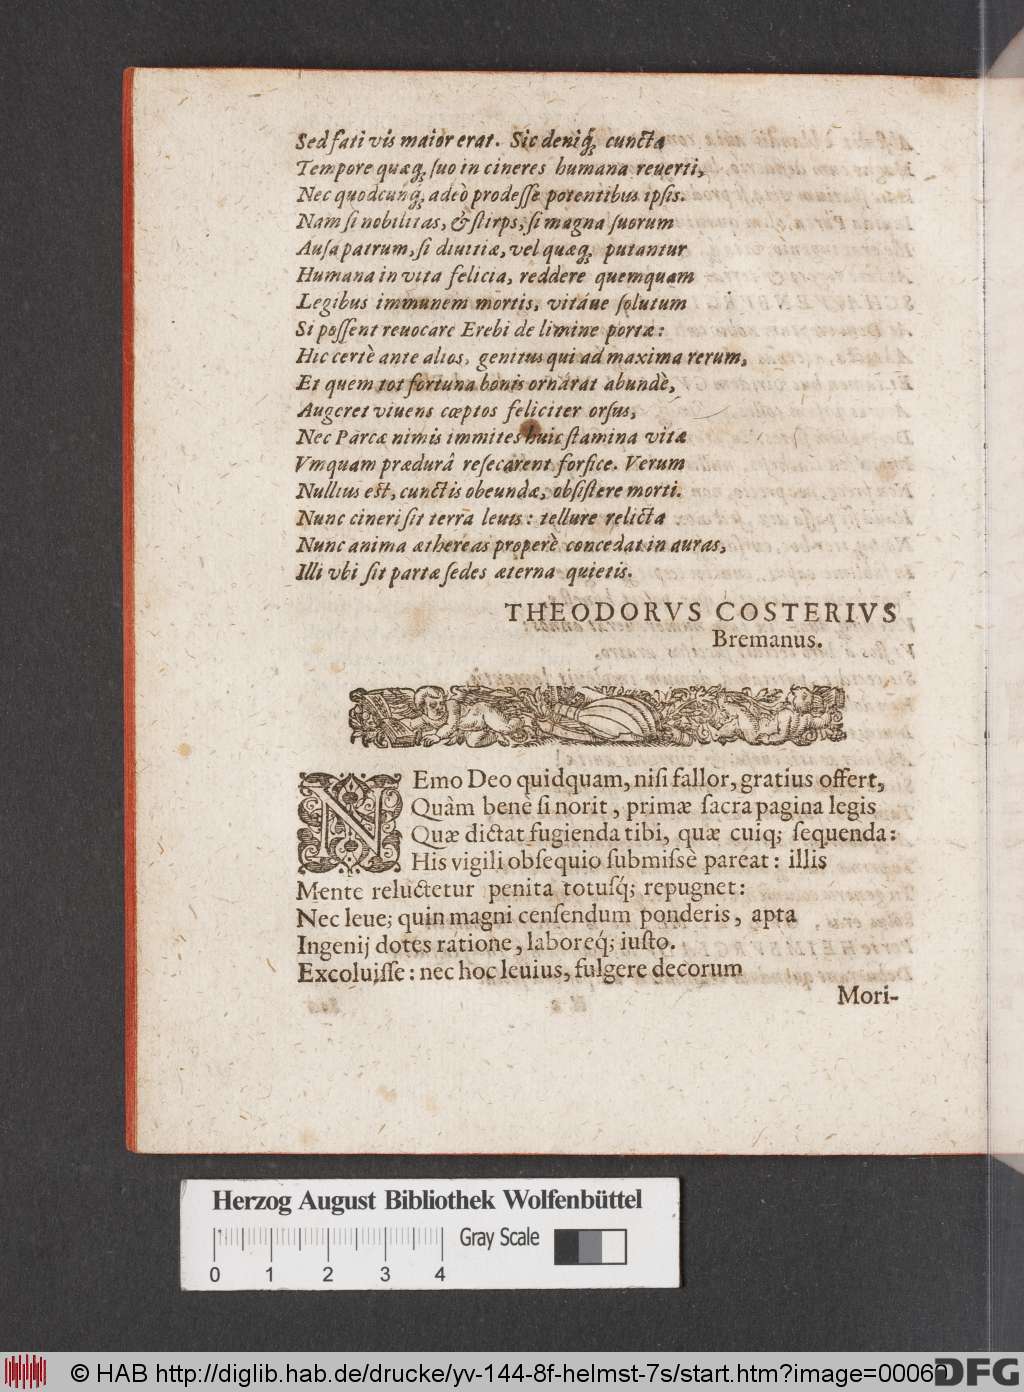 Sed fati vis maior erat. Sic deniq́; cuncta
Tempore quæq; ſuo in cineres humana reuerti,
Nec quodcunq; adeò prodeſſe potentibus ipſis.
Nam ſi nobilitas, & ſtirps, ſi magna ſuorum
Auſa patrum, ſi diuitiæ, vel quæq; putantur
Humana in vita felicia, reddere quemquam
Legibus immunem mortis, vitáue ſolutum
Si poſſent reuocare Erebi de limine portæ:
Hic certè ante alios, genitus qui ad maxima rerum,
Et quem tot fortuna bonis ornârat abundè,
Augeret viuens cœptos feliciter orſus,
Nec Parcæ nimis immites huic ſtamina vitæ
Vmquam prædurâ reſecarent forfice. Verum
Nullius eſt, cunctis obeundæ, obſiſtere morti.
Nunc cineri ſit terra leuis: tellure relicta
Nunc anima æthereas properè concedat in auras,
Illi vbi ſit partæ ſedes æterna quietis.
THEODORVS COSTERIVS
Bremanus.
NEmo Deo quidquam, niſi fallor, gratius offert,
Quàm benè ſi norit, primæ ſacra pagina legis
Quæ dictat fugienda tibi, quæ cuiq; ſequenda:
His vigili obſequio ſubmiſſè pareat: illis
Mente reluctetur penita totuſq́; repugnet:
Nec leue; quin magni cenſendum ponderis, apta
Ingenij dotes ratione, laboreq́; iuſto.
Excoluiſſe: nec hoc leuius, fulgere decorum
Mori-
Herzog August Bibliothek Wolfenbüttel
Gray Scale
0 1 2 3 4
© HAB http://diglib.hab.de/drucke/yv-144-8f-helmst-7s/start.htm?image=00060
DFG